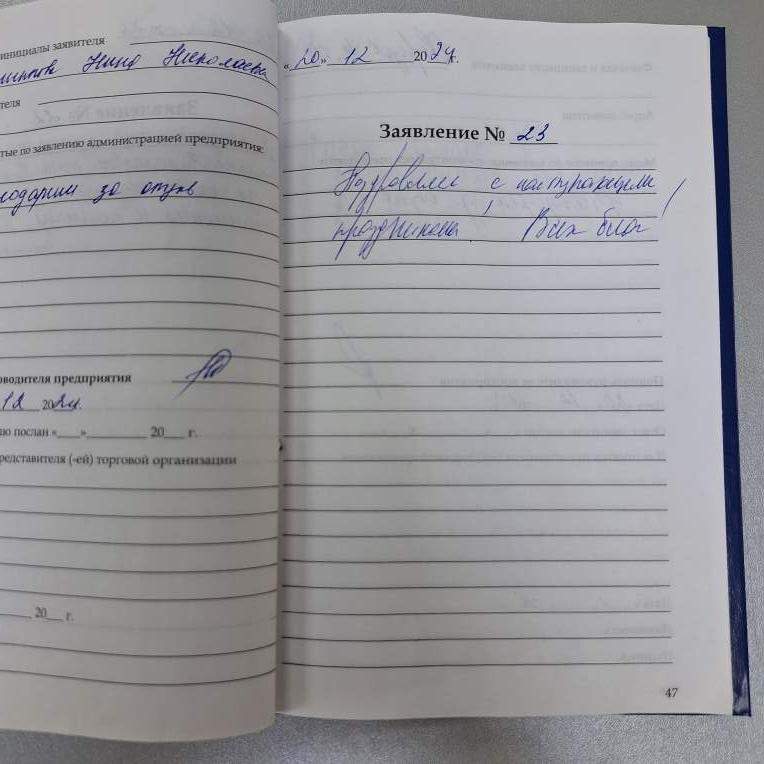 инициалы заявителя
Нина Николаевна
теля
тые по заявлению администрацией предприятия:
одарим за отзыв
оводителя предприятия
12 2024.
ю послан «___»________ 20___ г.
редставителя (-ей) торговой организации
20___ г.
«20» 12 2024г.
Заявление № 23
Поздравляем с наступающими
праздниками! Всех благ!
47